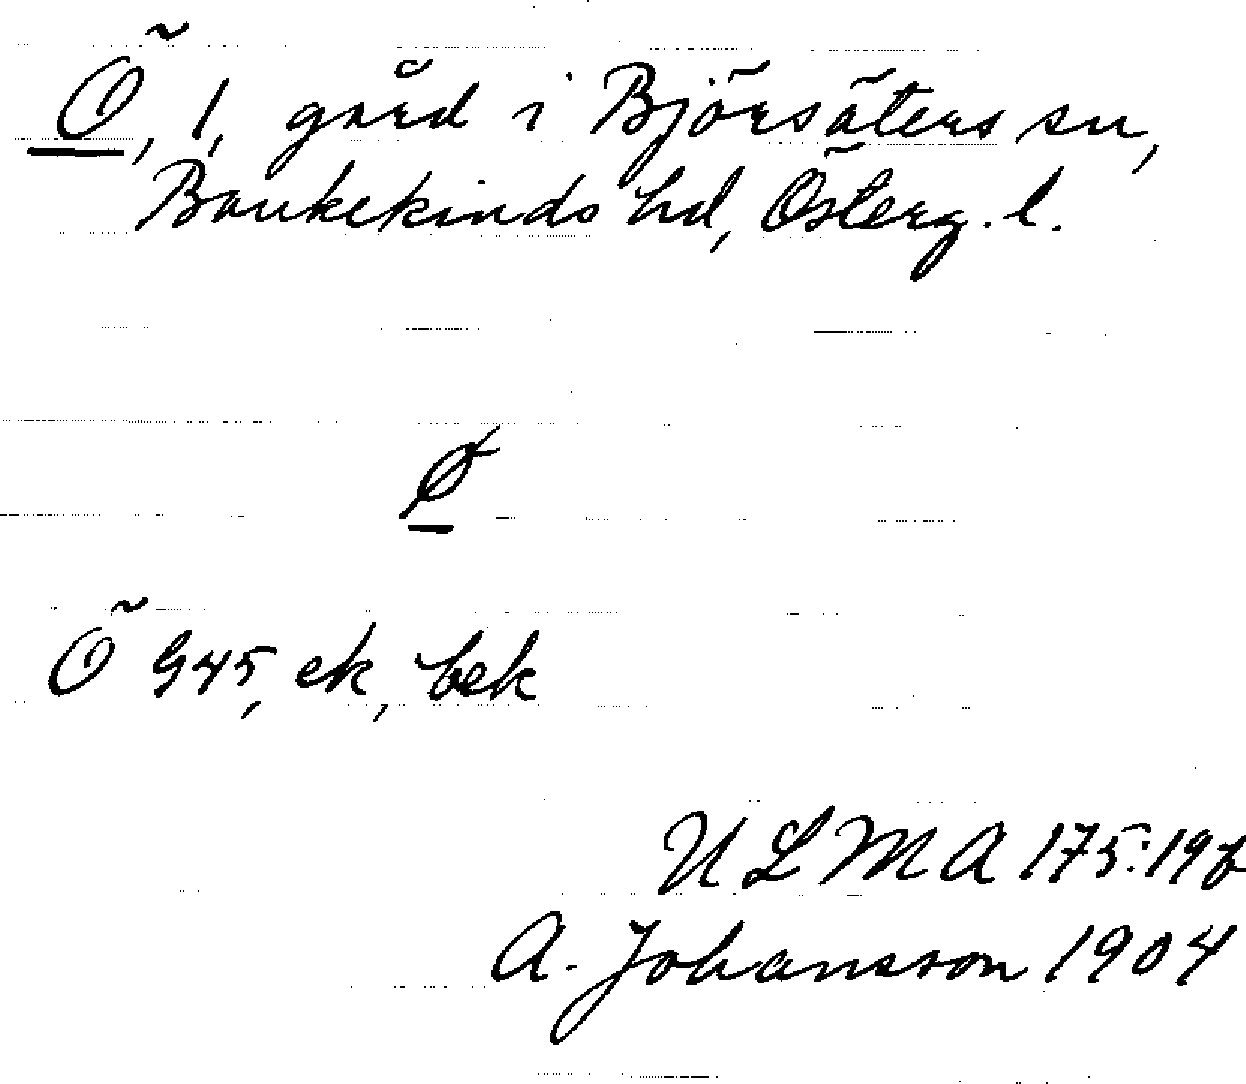 Ö, 1, gård i Björsäters sn,
Bankekinds hd, Österg. l.
Ø
Ö G45, ek, bek
ULMA 175:19b
A. Johansson 1904